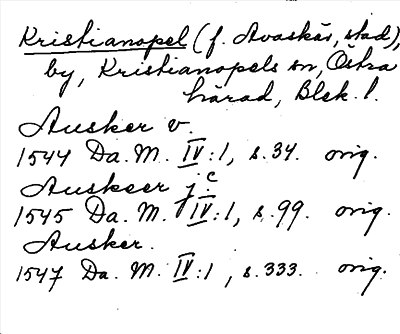 Kristianopel (f. Avaskär, stad),
by, Kristianopels sn, Östra
härad, Blek. l.
Ausker v.
1544 Da. M. IV:1, s. 34. orig.
Auskeer j. c
1545 Da. M. IV:1, s. 99. orig.
Ausker.
1547 Da. M. IV:1, s. 333. orig.